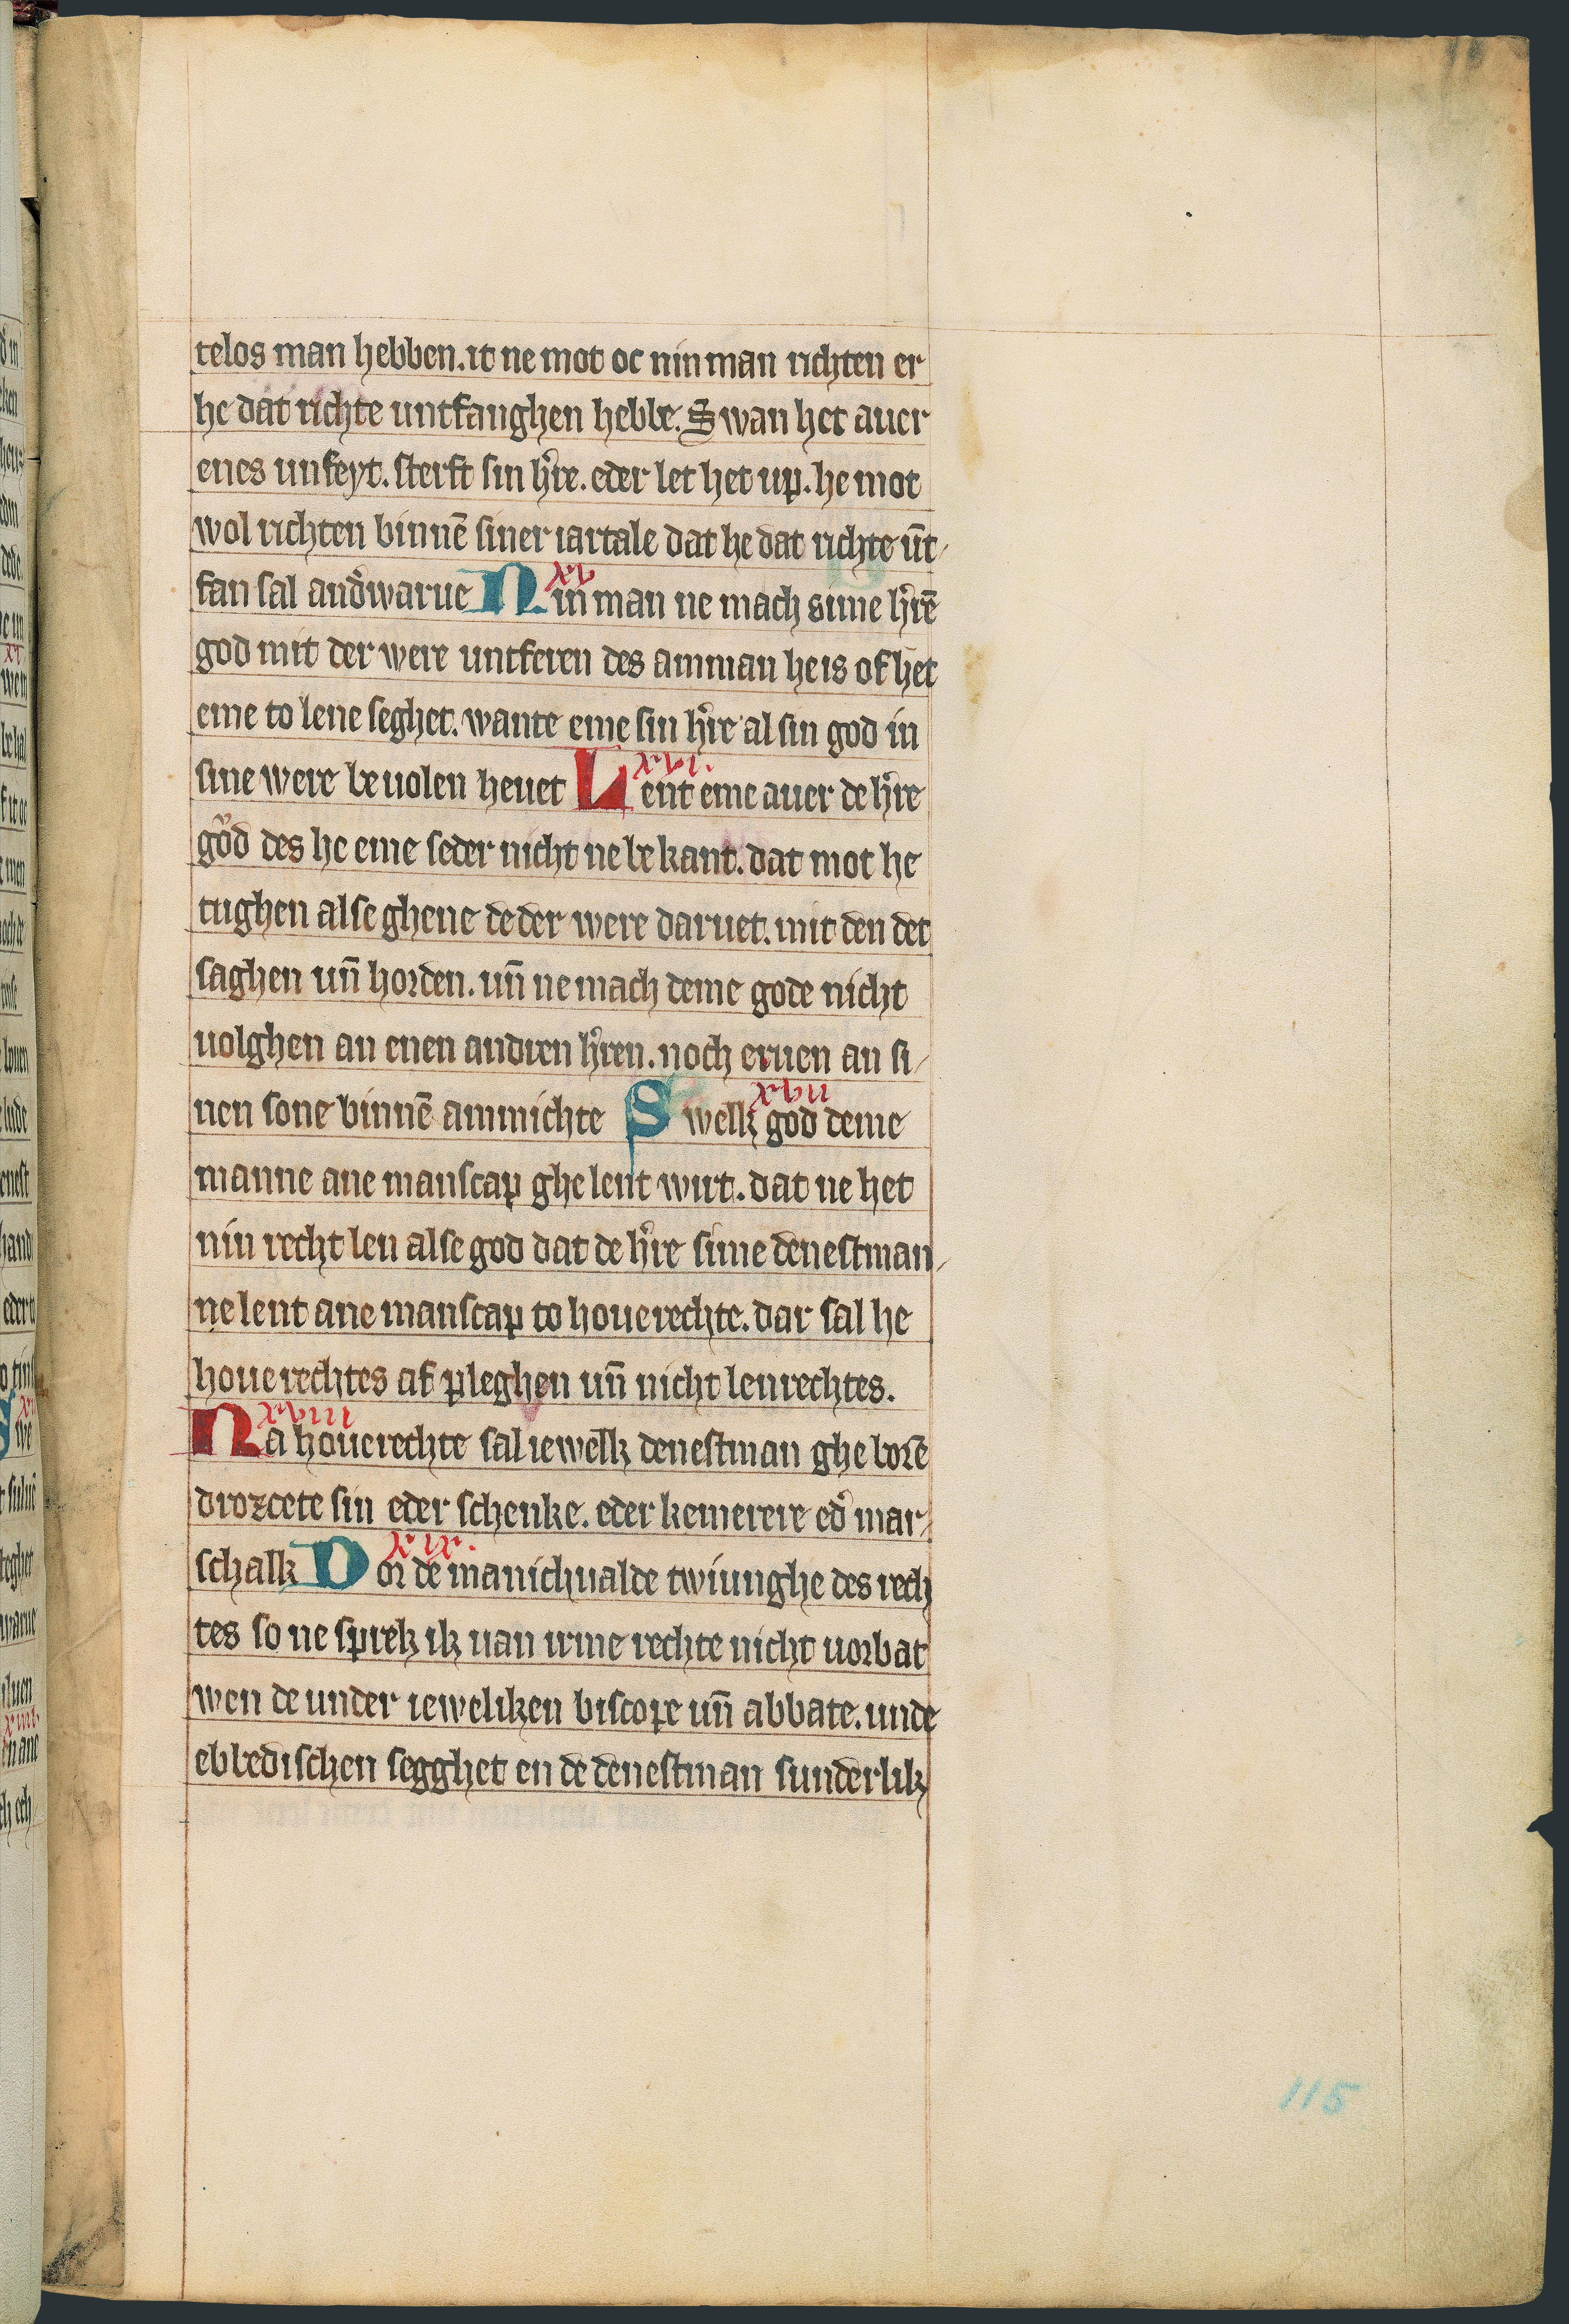 telos man hebben. it ne mot oc nin man richten er
he dat richte untfanghen hebbe. Swan het auer
enes unfeyt. sterft sin h're. eder let het up. he mot
wol richten binnē siner iartale dat he dat richte ūt-
fan sal and'warue xv Nin man ne mach sime h'rē
god mit der were untferen des amman he is of het
eme to lene seghet. wante eme sin h're al sin god in
sine were beuolen heuet xvi. Lent eme auer de h're
god des he eme seder nicht ne bekant. dat mot he
tughen alse ghene de der were daruet. mit den det
saghen un̄ horden. un̄ ne mach deme gode nicht
uolghen an enen andren h'ren. noch eruen an si-
nen sone binnē ammichte xvii Swelk god deme
manne ane manscap ghelent wirt. dat ne het
nin recht len alse god dat de h're sime denestman-
ne lent ane manscap to houerechte. dar sal he
houerechtes af pleghen un̄ nicht lenrechtes.
xviii Na houerechte sal iewelk denestman gheborē
drozcete sin eder schenke. eder kemerere ed' mar-
schalk xix. Dor de manichualde twiunghe des rech
tes so ne sprek ik uan irme rechte nicht uorbat
wen de under ieweliken biscope un̄ abbate. unde
ebbedischen segghet en de denestman sunderlik
115